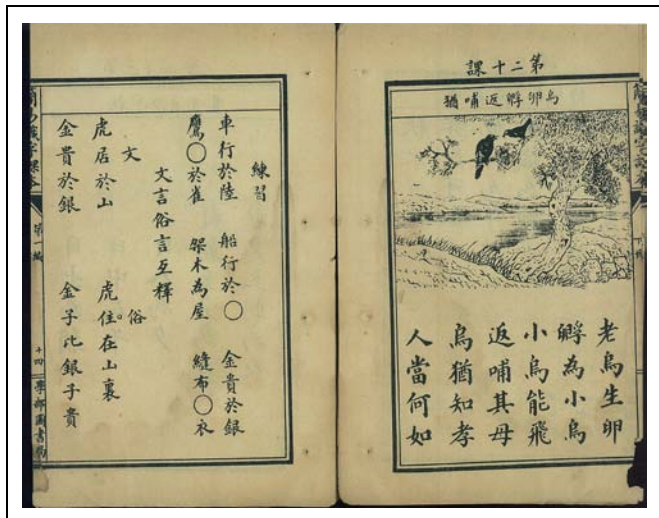 第二十課
烏卵孵返哺猶
老烏生卵
孵為小烏
小烏能飛
返哺其母
烏猶知孝
人當何如
練習
車行於陸 船行於○ 金貴於銀
鷹○於雀 架木為屋 縫布○衣
文言俗言互釋
文 俗
虎居於山 虎住在山裏
金貴於銀 金子比銀子貴
簡易識字課本 第一編 十四 學部圖書局